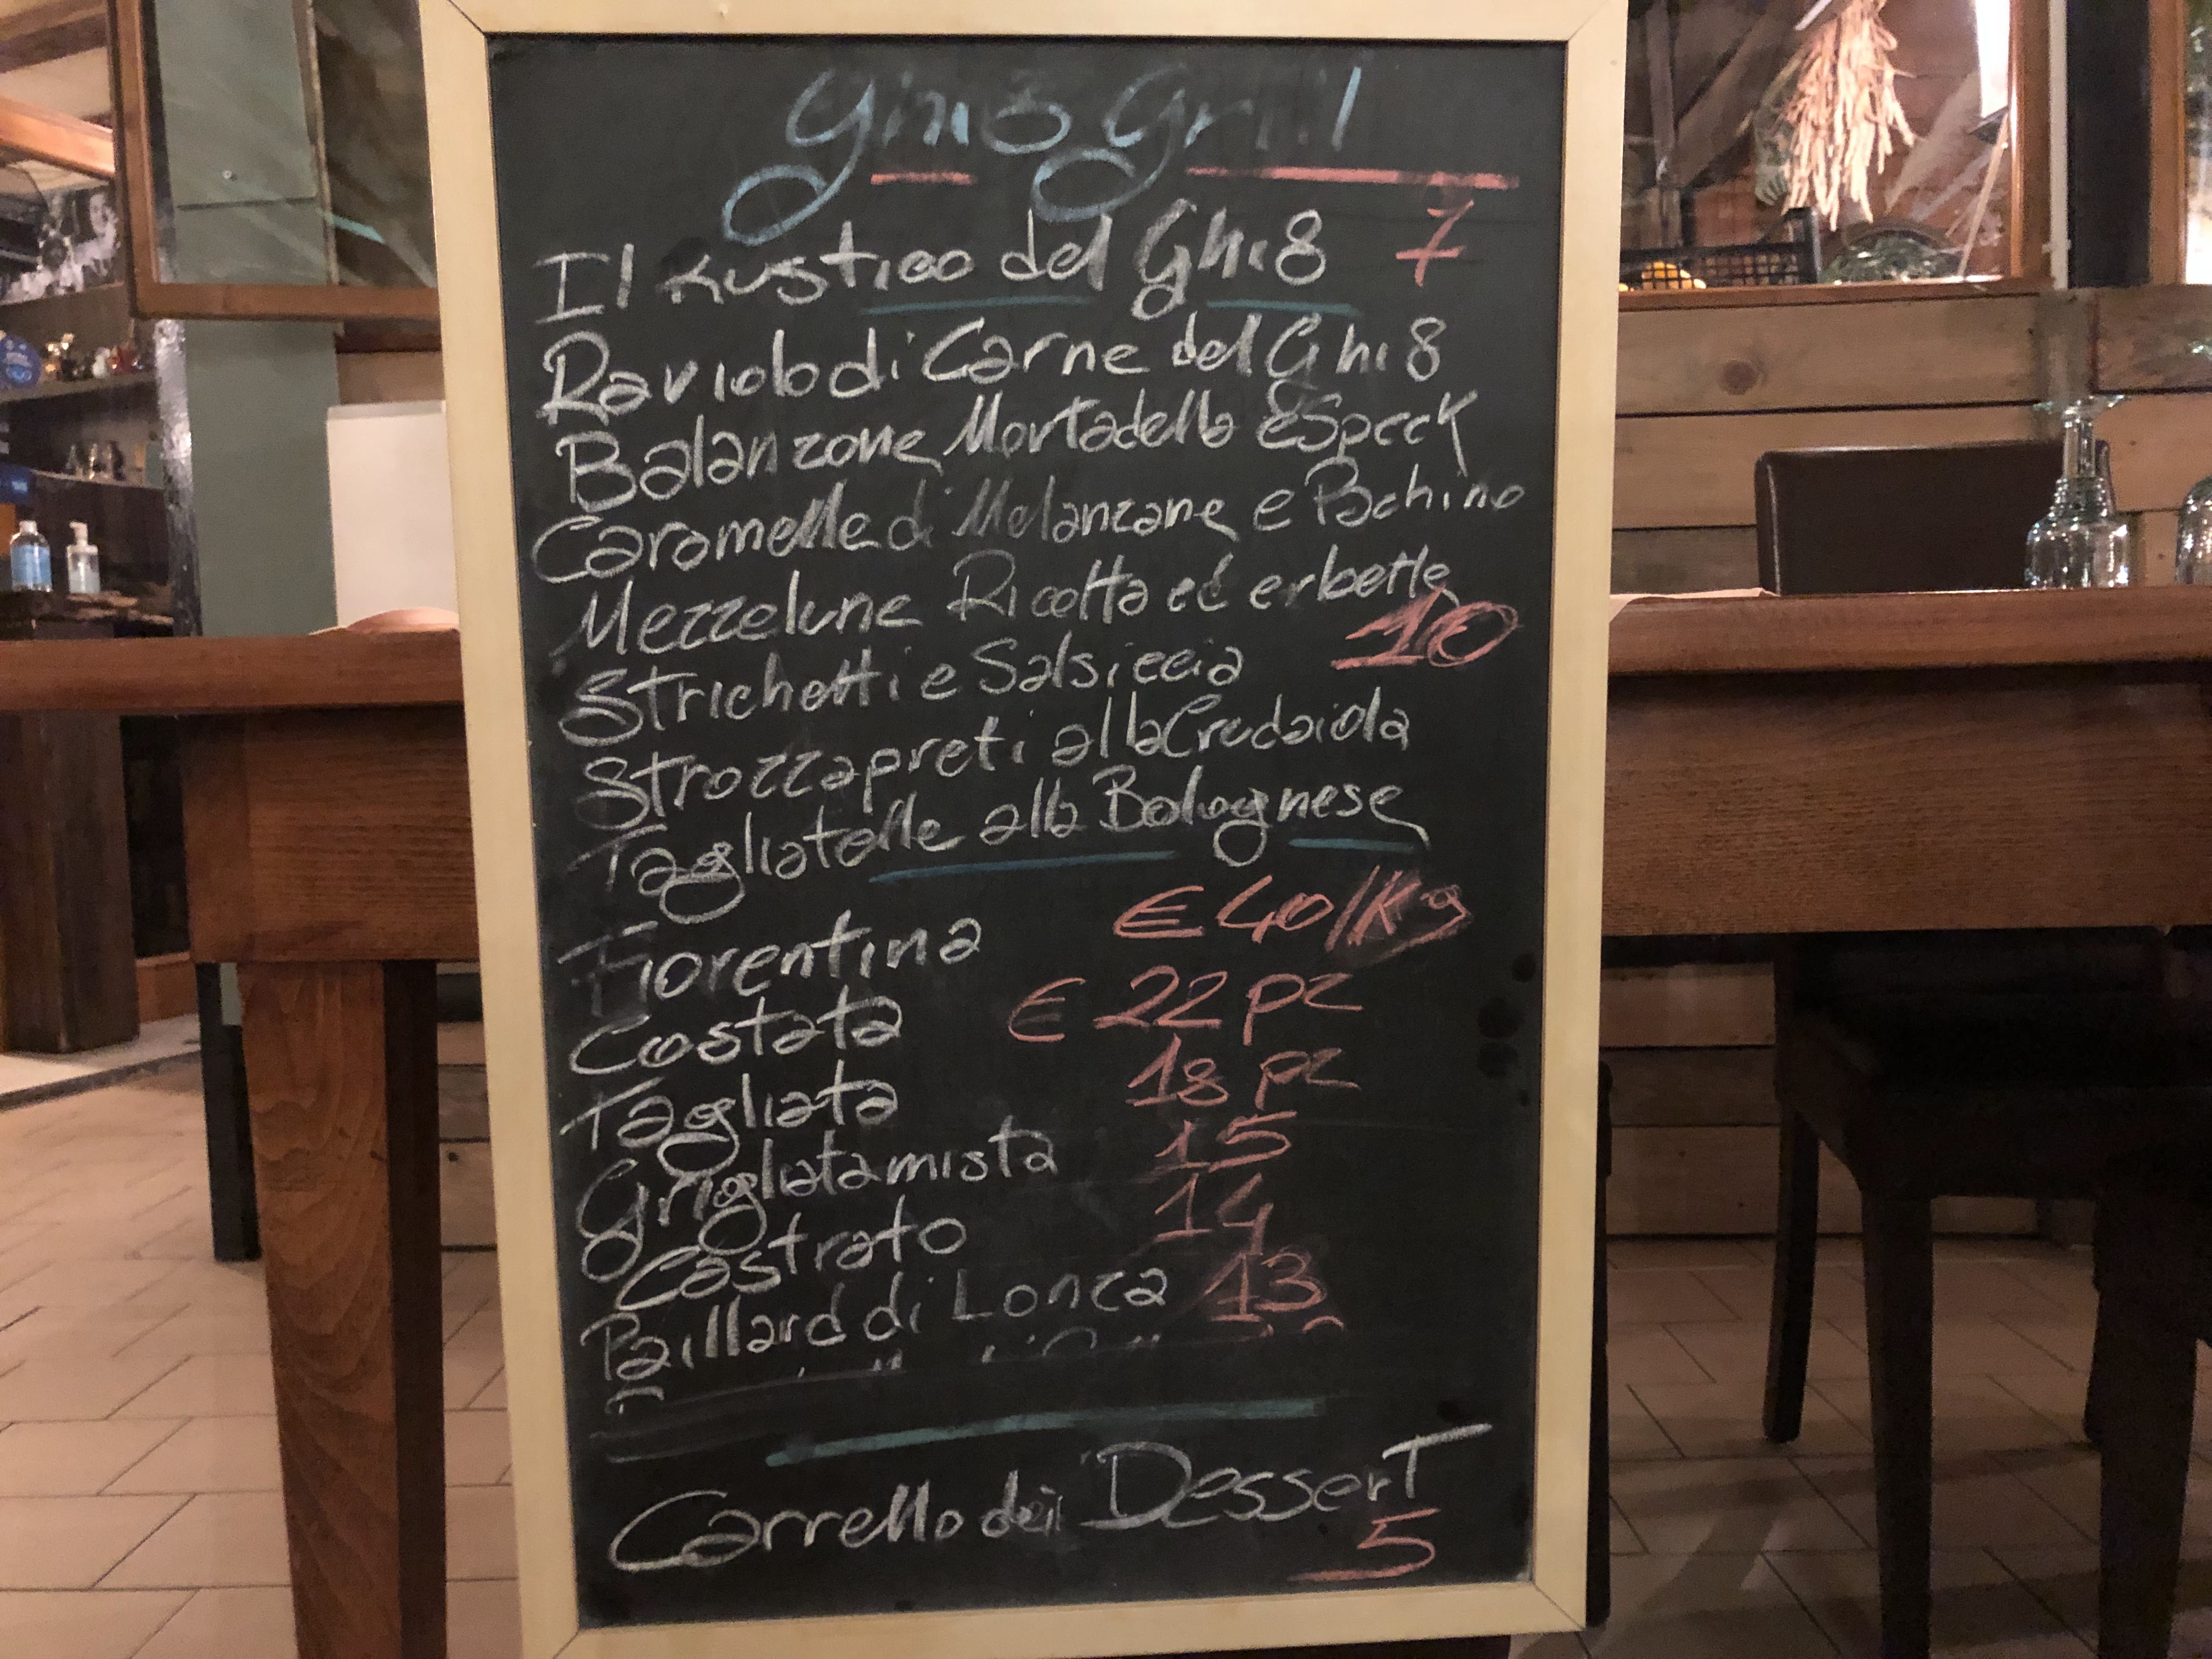 Ghi8 Grill
Il Rustico del Ghi8 7
Raviolo di Carne del Ghi8
Balanzone Mortadella e Speck
Caramelle di Melanzane e Pachino
Mezzelune Ricotta ed erbette
10
Strichetti e Salsiccia
Strozzapreti alla Crudaiola
Tagliatelle alla Bolognese
Fiorentina € 40/Kg
Costata € 22 pz
Tagliata 18 pz
Grigliata mista 15
Castrato 14
Paillard di Lonza 13
Carrello dei Dessert
5